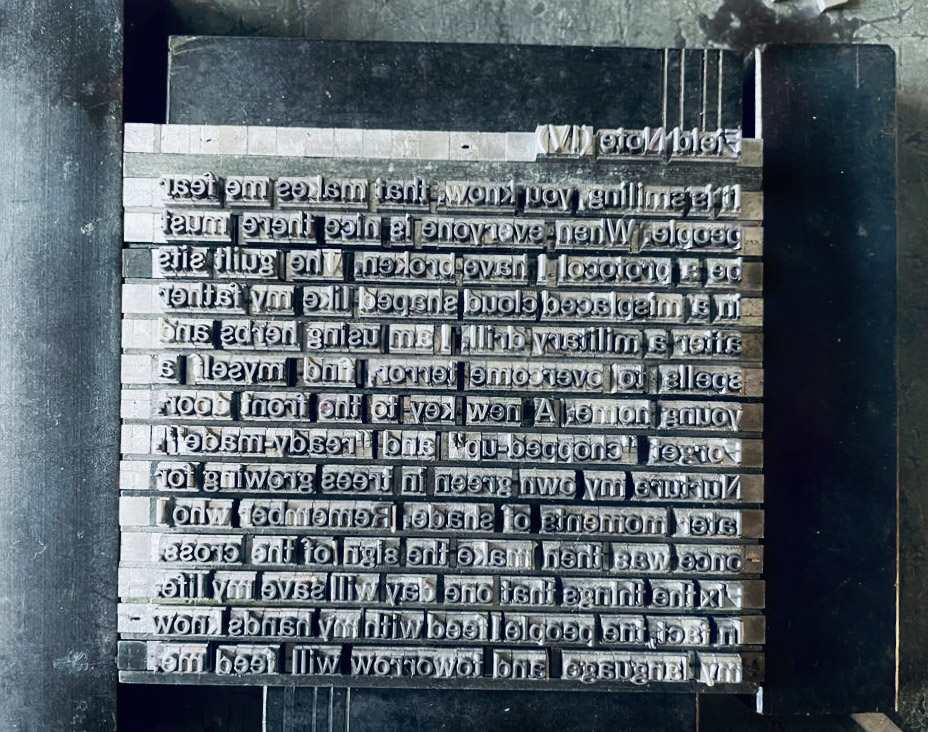 Field Note (IV)
It is smiling, you know, that makes me fear
people. When everyone is nice there must
be a protocol I have broken. The guilt sits
in a misplaced cloud shaped like my father
after a military drill. I am using herbs and
spells to overcome terror, find myself a
young home. A new key to the front door.
Forget "chopped-up" and "ready-made".
Nurture my own green in trees growing for
later moments of shade. Remember who I
once was then make the sign of the cross.
Fix the things that one day will save my life.
In fact, the people I feed with my hands know
my language and toworrow will feed me.